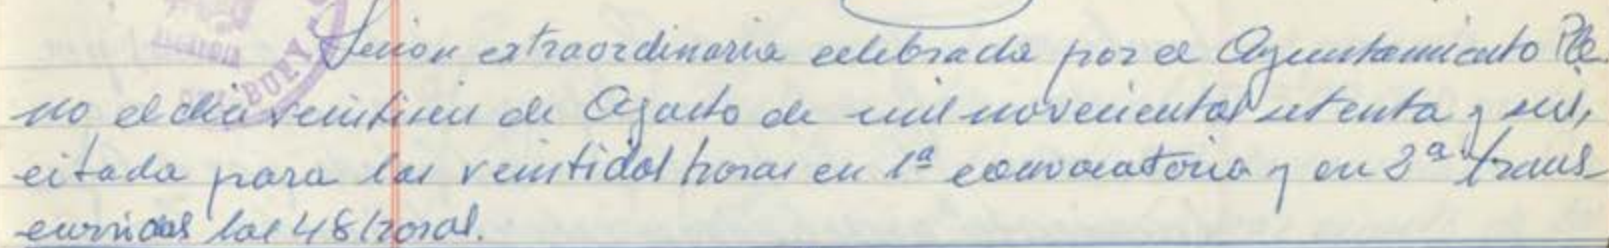 Sesion extraordinaria celebrada por el Ayuntamiento Ple-
no el dia veintiseis de Agosto de mil novecientos setenta y seis,
citada para las veintidos horas en 1ª convocatoria y en 2ª trans-
curridas las 48 horas.
BUEY